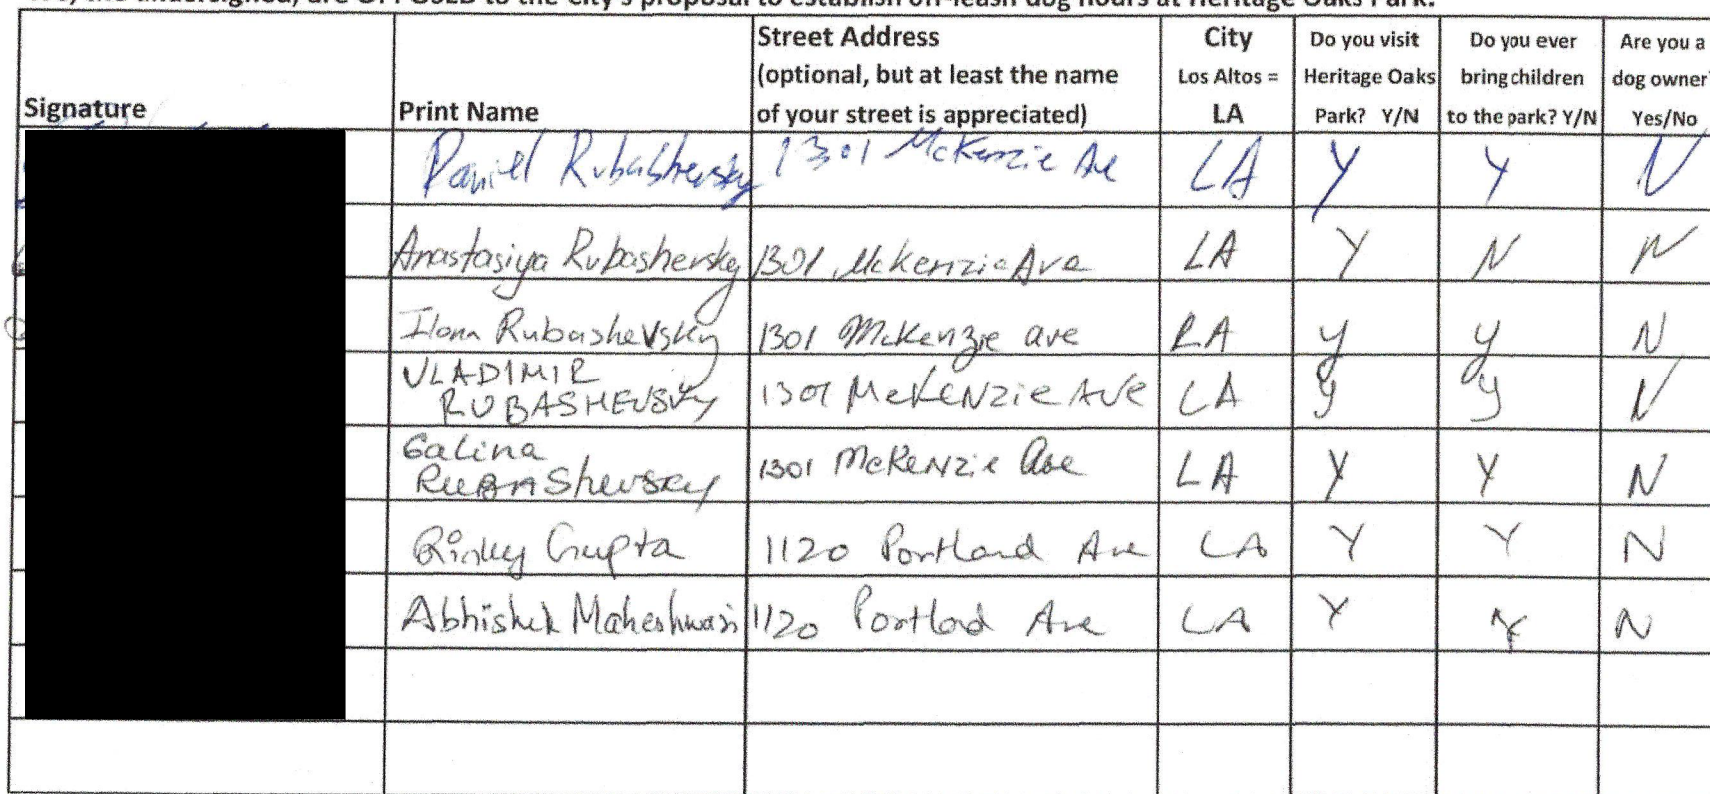 We, the undersigned, are OPPOSED to the City's proposal to establish off-leash dog hours at Heritage Oaks Park.
Signature
Print Name
Street Address
(optional, but at least the name
of your street is appreciated)
City
Los Altos =
LA
Do you visit
Heritage Oaks
Park? Y/N
Do you ever
bring children
to the park? Y/N
Are you a
dog owner?
Yes/No
Daniel Rubashevsky 1301 McKenzie Ave LA Y Y N
Anastasiya Rubashevsky 1301 McKenzie Ave LA Y N N
Ilona Rubashevsky 1301 McKenzie ave LA y y N
VLADIMIR
RUBASHEVSKY 1301 McKENzie AVE LA y y N
Galina
RUBAShevsky 1301 McKeNzie Ave LA Y Y N
Rinky Gupta 1120 Portland Ave LA Y Y N
Abhishek Maheshwari 1120 Portlad Ave LA Y Y N